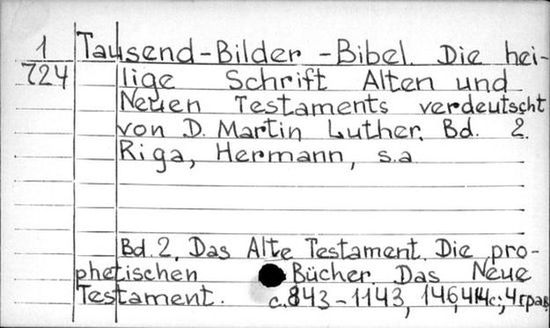 1
724
Tausend-Bilder-Bibel. Die hei-
lige Schrift Alten und
Neuen Testaments verdeutscht
von D. Martin Luther. Bd. 2.
Riga, Hermann, s.a
Bd. 2. Das Alte Testament. Die pro-
phetischen Bücher. Das Neue
Testament. c. 843-1143, 146, c; 4 грав